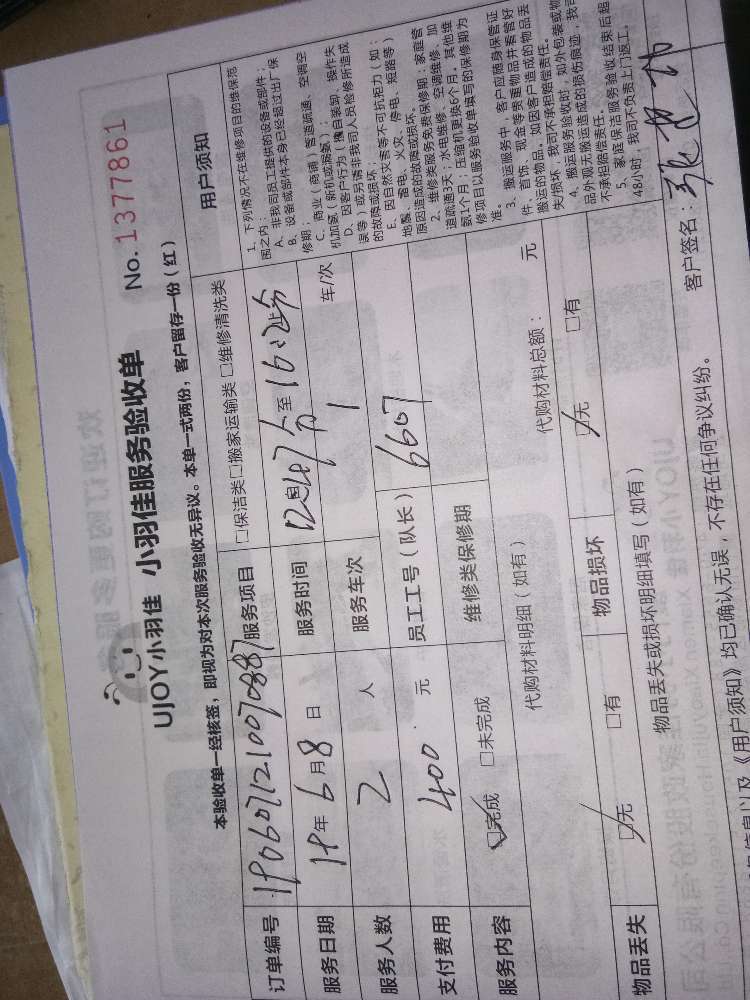 UJOY小羽佳 小羽佳服务验收单 No. 1377861
本验收单一经核签，即视为对本次服务验收无异议。本单一式两份，客户留存一份（红）
订单编号 1906071210070887 服务项目 □保洁类□搬家运输类 □维修清洗类
服务日期 19年6月8日 服务时间 12时47分至16:25分
服务人数 2 人 服务车次 1 车/次
支付费用 400 元 员工工号（队长） 6607
服务内容 ☑完成 □未完成 维修类保修期
代购材料明细（如有） 代购材料总额： 元
物品丢失 ☑无 □有 物品损坏 ☑无 □有
物品丢失或损坏明细填写（如有）
用户须知
1、下列情况不在维修项目的维保范
围之内：
A、非我司员工提供的设备或部件；
B、设备或部件本身已经超过出厂保
修期；
C、商业（商铺）管道疏通、空调空
机加氨（新机或漏氨）；
D、因客户行为（擅自装卸、操作失
误等）或另请非我司人员检修所造成
的故障或损坏；
E、因自然灾害等不可抗拒力（如：
地震、雷电、火灾、停电、短路等）
原因造成的故障或损坏。
2、维修类服务免费保修期：家庭管
道疏通3天；水电维修、空调维修、加
氨1个月；压缩机更换6个月。其他维
修项目以服务验收单填写的保修期为
准。
3、搬运服务中，客户应随身保管证
件、首饰、现金等贵重物品并看管好
搬运的物品。如因客户造成的物品丢
失损坏，我司不承担赔偿责任。
4、搬运服务验收时，如外包装或物
品外观无搬运造成的损伤痕迹，我司
不承担赔偿责任。
5、家庭保洁服务验收结束后超
48小时，我司不负责上门返工。
信息以及《用户须知》均已确认无误，不存在任何争议纠纷。 客户签名：